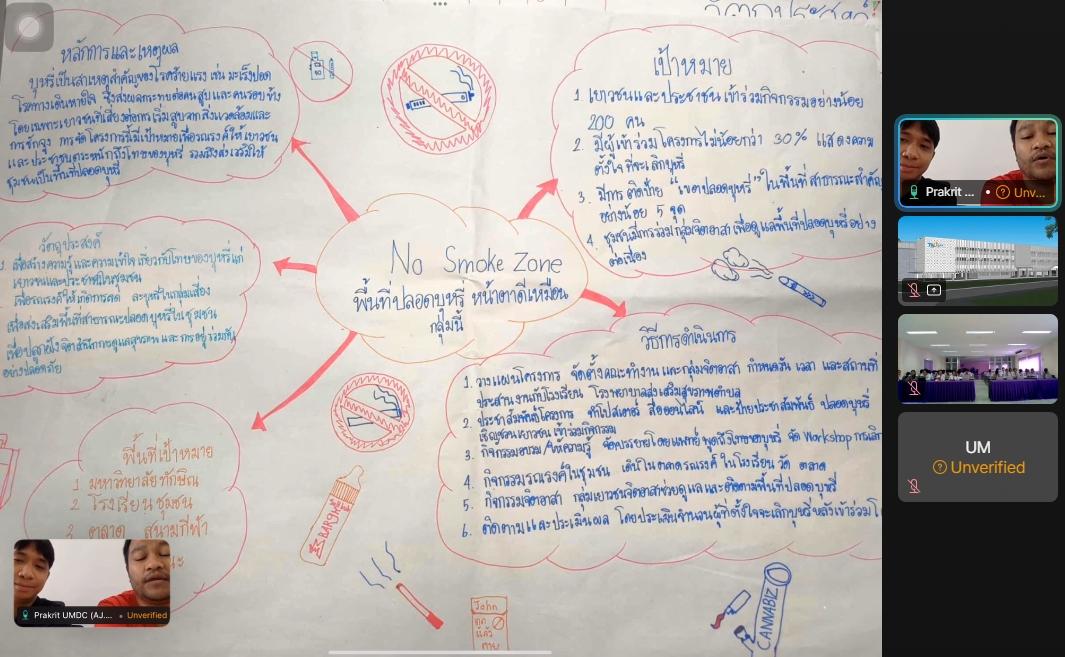 วัตถุประสงค์
หลักการและเหตุผล
บุหรี่เป็นสาเหตุสำคัญของโรคร้ายแรง เช่น มะเร็งปอด
โรคทางเดินหายใจ ซึ่งส่งผลกระทบต่อคนสูบและคนรอบข้าง
โดยเฉพาะเยาวชนที่เสี่ยงต่อการเริ่มสูบจากสิ่งแวดล้อมและ
การชักจูง การจัดโครงการนี้มีเป้าหมายเพื่อรณรงค์ให้เยาวชน
และประชาชนตระหนักถึงโทษของบุหรี่ รวมถึงส่งเสริมให้
ชุมชนเป็นพื้นที่ปลอดบุหรี่
เป้าหมาย
1. เยาวชนและประชาชนเข้าร่วมกิจกรรมอย่างน้อย
200 คน
2. มีผู้เข้าร่วมโครงการไม่น้อยกว่า 30% แสดงความ
ตั้งใจที่จะเลิกบุหรี่
3. มีการติดป้าย "เขตปลอดบุหรี่" ในพื้นที่สาธารณะสำคัญ
อย่างน้อย 5 จุด
4. ชุมชนมีการร่วมกลุ่มจิตอาสาเพื่อดูแลพื้นที่ปลอดบุหรี่อย่าง
ต่อเนื่อง
No Smoke Zone
พื้นที่ปลอดบุหรี่ หน้าตาดีเหมือน
กลุ่มนี้
วัตถุประสงค์
1. เพื่อสร้างความรู้และความเข้าใจเกี่ยวกับโทษของบุหรี่แก่
เยาวชนและประชาชนในชุมชน
เพื่อรณรงค์ให้เกิดการลด ละบุหรี่ในกลุ่มเสี่ยง
เพื่อส่งเสริมพื้นที่สาธารณะปลอดบุหรี่ในชุมชน
เพื่อปลูกฝังจิตสำนึกการดูแลสุขภาพ และการอยู่ร่วมกัน
อย่างปลอดภัย
วิธีการดำเนินการ
1. วางแผนโครงการ จัดตั้งคณะทำงานและกลุ่มจิตอาสา กำหนดวัน เวลา และสถานที่
ประสานงานกับโรงเรียน โรงพยาบาลส่งเสริมสุขภาพตำบล
2. ประชาสัมพันธ์โครงการ ทำโปสเตอร์ สื่อออนไลน์ และป้ายประชาสัมพันธ์ ปลอดบุหรี่
เชิญชวนเยาวชนเข้าร่วมกิจกรรม
3. กิจกรรมอบรม/ให้ความรู้ จัดบรรยายโดยแพทย์ พูดถึงโทษของบุหรี่ จัด Workshop การเลิก
4. กิจกรรมรณรงค์ในชุมชน เดินในตลาดรณรงค์ ในโรงเรียน วัด ตลาด
5. กิจกรรมจิตอาสา กลุ่มเยาวชนจิตอาสาช่วยดูแลและติดตามพื้นที่ปลอดบุหรี่
6. ติดตามและประเมินผล โดยประเมินจำนวนผู้ที่ตั้งใจจะเลิกบุหรี่หลังเข้าร่วมโ
พื้นที่เป้าหมาย
1 มหาวิทยาลัยทักษิณ
2 โรงเรียน ชุมชน
3 ตลาด สนามกีฬา
MARBORO
John
ดูด
แล้ว
ตาย
CANNABIZ
Prakrit UMDC (AJ.... • Unverified
Prakrit ... • Unv...
UM
Unverified